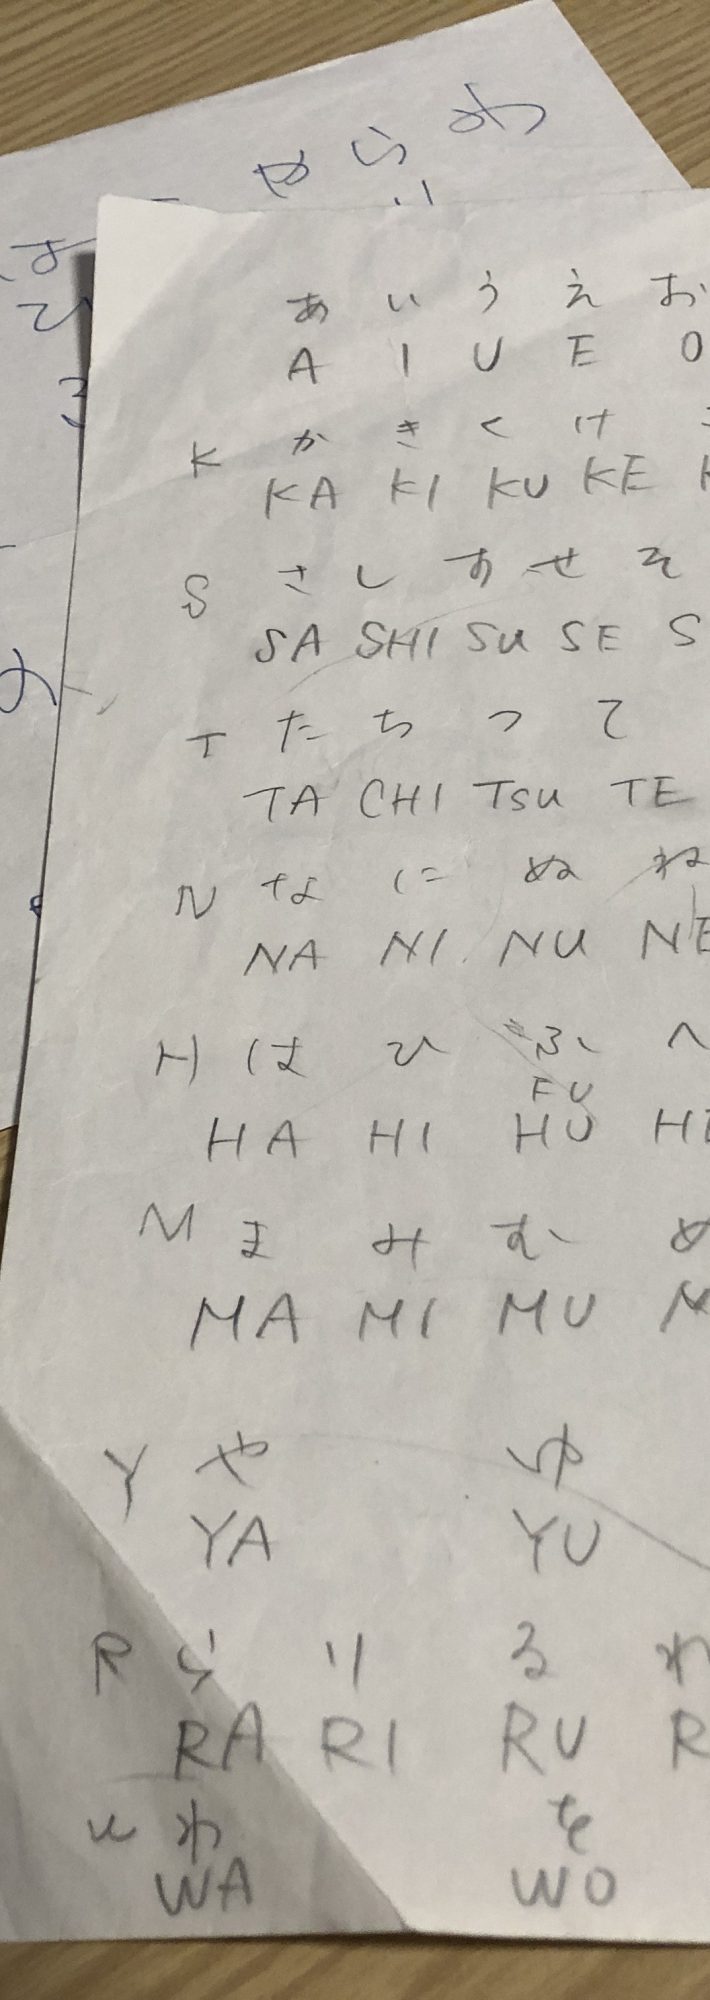 や ら わ
は
ひ
あ い う え お
A I U E O
K か き く け
KA KI KU KE
S さ し す せ そ
SA SHI SU SE S
T た ち つ て
TA CHI TSU TE
N な に ぬ ね
NA NI NU NE
H は ひ ふ へ
FU
HA HI HU HE
M ま み む め
MA MI MU M
Y や ゆ
YA YU
R ら り る れ
RA RI RU R
W わ を
WA WO